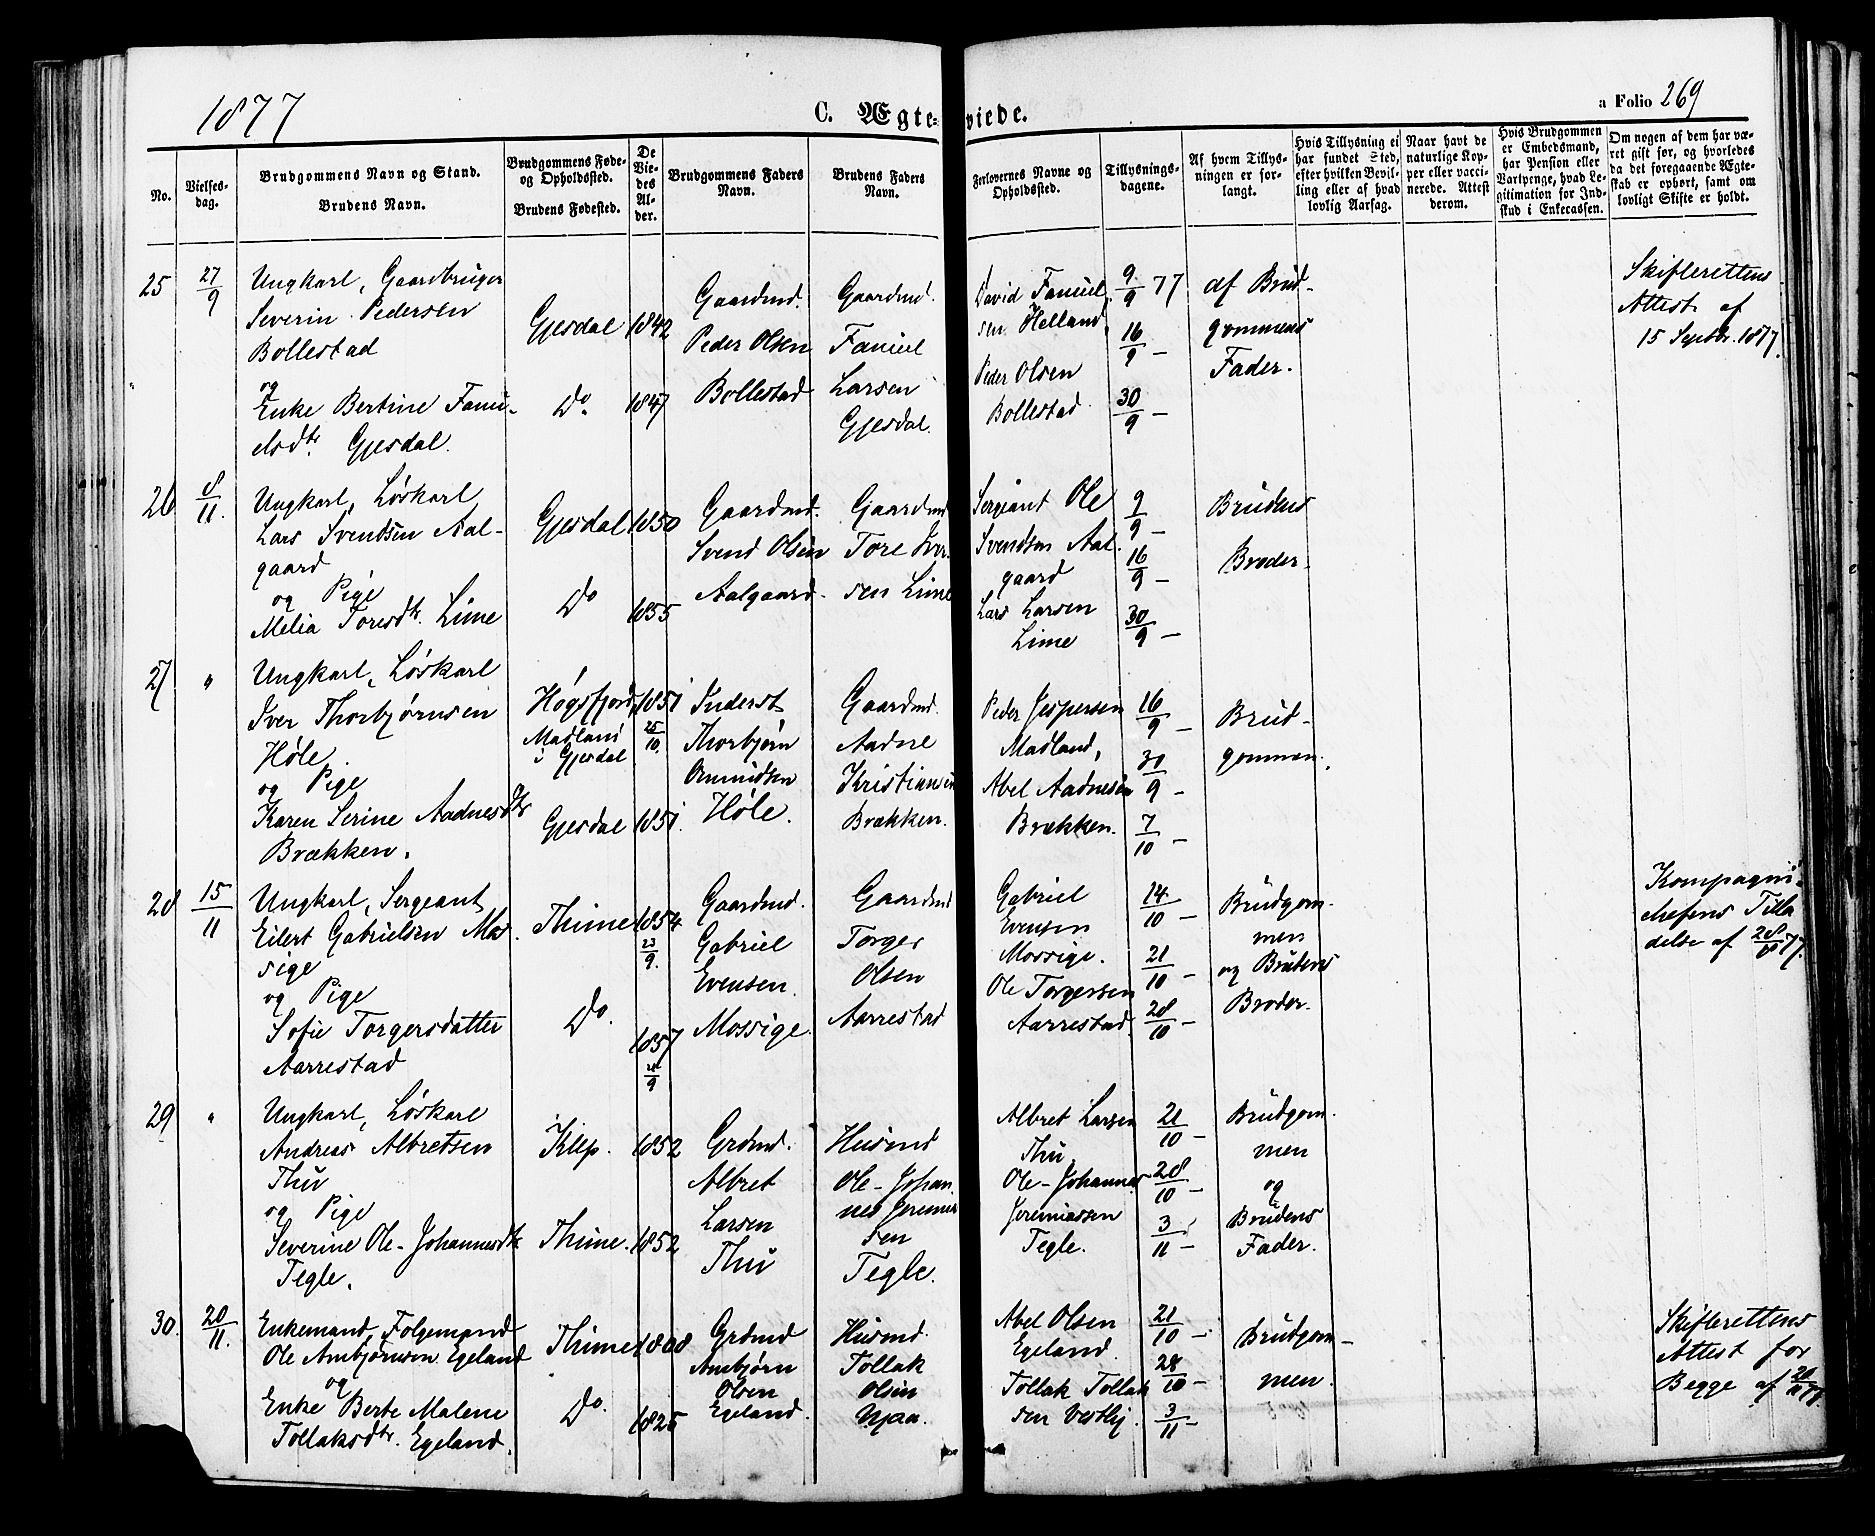 1877
C. Ægte-
viede.
a Folio 269
No.
Vielses-
dag.
Brudgommens Navn og Stand.
Brudens Navn.
Brudgommens Føde-
og Opholdssted.
Brudens Fødested.
De
Vie-
des
Al-
der.
Brudgommens Faders
Navn.
Brudens Faders
Navn.
Forlovernes Navne og
Opholdssted.
Tillysnings-
dagene.
Af hvem Tillys-
ningen er for-
langt.
Hvis Tillysning ei
har fundet Sted,
efter hvilken Bevil-
ling eller af hvad
lovlig Aarsag.
Naar havt de
naturlige Kop-
per eller vacci-
nerede. Attest
derom.
Hvis Brudgommen
er Embedsmand,
har Pension eller
Vartpenge, hvad Le-
gitimation for Ind-
skud i Enkecassen.
Om nogen af dem har væ-
ret gift før, og hvorledes
da det foregaaende Ægte-
skab er ophørt, samt om
lovligt Skifte er holdt.
25
27/9
Ungkarl, Gaardbruger
Severin Pedersen
Bollestad
og
Enke Bertine Fanu-
elsdtr. Gjesdal.
Gjesdal
Do.
1842
1847
Gaardmd.
Peder Olsen
Bollestad
Gaardmd.
Fanuel
Larsen
Gjesdal.
David Fanuel
sen Helland,
Peder Olsen
Bollestad
9/9 77
16/9 –
30/9 –
af Brud-
gommens
Fader.
Skifterettens
Attest af
15 Septbr. 1877.
26
8/11.
Ungkarl, Løskarl
Lars Svendsen Aal-
gaard
og Pige
Melia Toresdtr. Lime
Gjesdal
Do
1850
1855
Gaardmd.
Svend Olsen
Aalgaard
Gaardmd
Tore Iver-
sen Lime
Sergeant Ole
Svendsen Aal-
gaard
Lars Larsen
Lime
9/9 –
16/9 –
30/9 –
Brudens
Broder.
27
"
Ungkarl, Løskarl
Iver Thorbjørnsen
Høle,
og Pige
Karen Serine Aadnesdtr
Brækken.
Høgsfjord,
Madland
i Gjesdal
Gjesdal
1851
25/10.
1851.
Inderst
Thorbjørn
Omundsen
Høle.
Gaardmd.
Aadne
Kristiansen
Brækken.
Peder Jespersen
Madland,
Abel Aadnesen
Brækken.
16/9 –
30/9 –
7/10 –
Brud-
gommen.
28
15/11
Ungkarl, Sergeant
Eilert Gabrielsen Mos-
sige
og Pige
Sofie Torgersdatter
Aarrestad
Thime
Do.
1854
23/9.
1857
Gaardmd.
Gabriel
Evensen
Mossige.
Gaardmd
Torger
Olsen
Aarrestad
Gabriel
Evensen
Mossige.
Ole Torgersen
Aarrestad.
14/10 –
21/10 –
28/10 –
Brudgom-
men
og Brudens
Broder.
Kompagni-
chefens Tilla
delse af 28/10 77.
29
"
Ungkarl, Løskarl
Andreas Albretsen
Thu
og Pige
Severine Ole-Johannesdtr
Tegle.
Klep.
Thime.
1852
1852
Grdmd.
Albret
Larsen
Thu
Husmd
Ole-Johan-
nes Jeremias
sen
Tegle.
Albret Larsen
Thu,
Ole-Johannes
Jeremiassen
Tegle.
21/10 –
28/10 –
3/11 –
Brudgom-
men
og
Brudens
Fader.
30.
20/11.
Enkemand, Folgemand
Ole Ambjørnsen Egeland
og
Enke Berte Malene
Tollaksdtr. Egeland.
Thime
Do.
1808
1825
Grdmd
Ambjørn
Olsen
Egeland.
Husmd.
Tollak
Olsen
Njaa.
Abel Olsen
Egeland.
Tollak Tollak
sen Vestly.
21/10 –
28/10 –
3/11 –
Brudgom-
men.
Skifterettens
Attest for
Begge af 20/11 77.